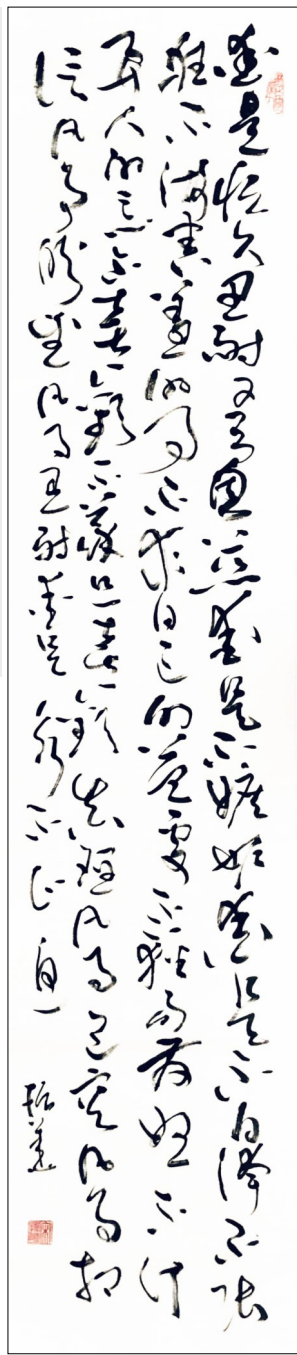 爱是恒久忍耐又有恩慈爱是不嫉妒爱是不自夸不张
狂不作害羞的事不求自己的益处不轻易发怒不计
算人的恶不喜欢不义只喜欢真理凡事包容凡事相
信凡事盼望凡事忍耐爱是永不止息